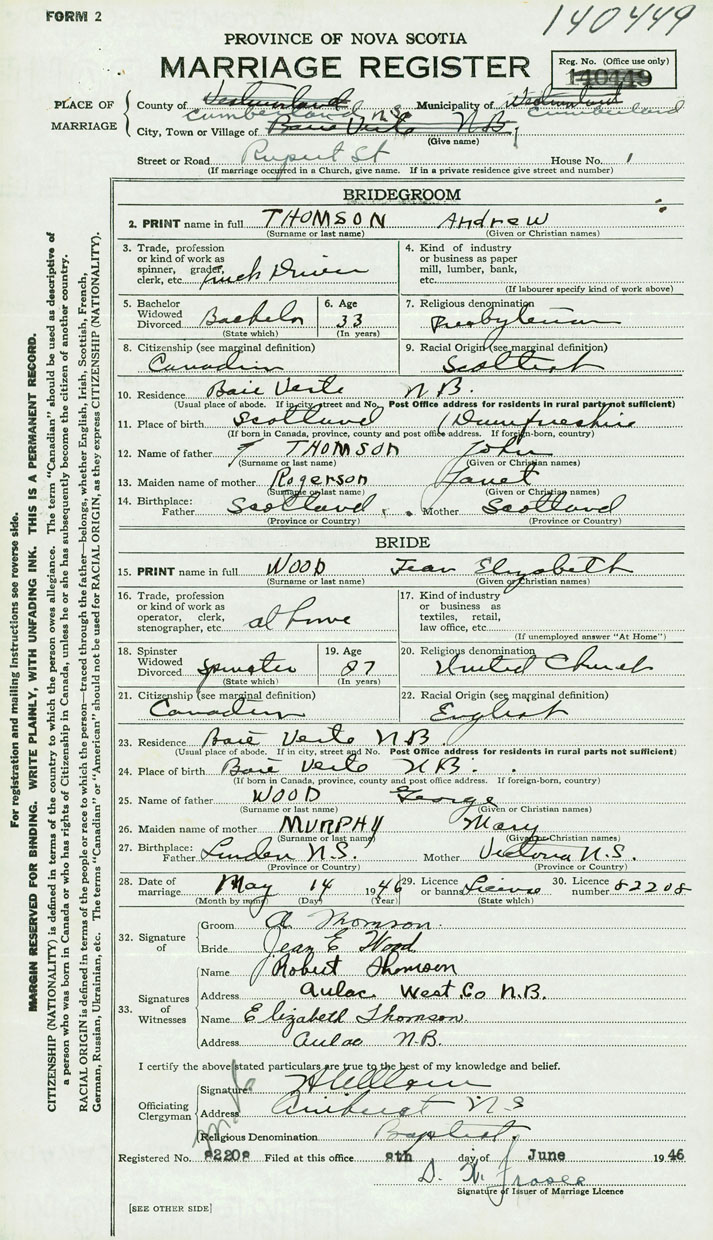 FORM 2
140449
PROVINCE OF NOVA SCOTIA
MARRIAGE REGISTER
Reg. No. (Office use only)
140449
PLACE OF MARRIAGE
County of Westmorland Cumberland Municipality of Westmorland Cumberland
City, Town or Village of Baie Verte N.B. N.S.
(Give name)
Street or Road Rupert St House No.
(If marriage occurred in a Church, give name. If in a private residence give street and number)
BRIDEGROOM
2. PRINT name in full THOMSON Andrew
(Surname or last name) (Given or Christian names)
3. Trade, profession or kind of work as spinner, grader, clerk, etc. Truck Driver
4. Kind of industry or business as paper mill, lumber, bank, etc.
(If labourer specify kind of work above)
5. Bachelor Widowed Divorced Bachelor
(State which)
6. Age 33
(In years)
7. Religious denomination Presbyterian
8. Citizenship (see marginal definition) Canadian
9. Racial Origin (see marginal definition) Scottish
10. Residence Baie Verte N.B.
(Usual place of abode. If in city, street and No. Post Office address for residents in rural parts not sufficient)
11. Place of birth Scotland (Dumfriesshire
(If born in Canada, province, county and post office address. If foreign-born, country)
12. Name of father THOMSON John
(Surname or last name) (Given or Christian names)
13. Maiden name of mother Rogerson Janet
(Surname or last name) (Given or Christian names)
14. Birthplace: Father Scotland Mother Scotland
(Province or Country) (Province or Country)
BRIDE
15. PRINT name in full WOOD Jean Elizabeth
(Surname or last name) (Given or Christian names)
16. Trade, profession or kind of work as operator, clerk, stenographer, etc. at home
17. Kind of industry or business as textiles, retail, law office, etc.
(If unemployed answer "At Home")
18. Spinster Widowed Divorced Spinster
(State which)
19. Age
(In years)
20. Religious denomination United Church
21. Citizenship (see marginal definition) Canadian
22. Racial Origin (see marginal definition) English
23. Residence Baie Verte N.B.
(Usual place of abode. If in city, street and No. Post Office address for residents in rural parts not sufficient)
24. Place of birth Baie Verte N.B.
(If born in Canada, province, county and post office address. If foreign-born, country)
25. Name of father WOOD George
(Surname or last name) (Given or Christian names)
26. Maiden name of mother MURPHY Mary
(Surname or last name) (Given or Christian names)
27. Birthplace: Father Linden N.S. Mother Victoria N.S.
(Province or Country) (Province or Country)
28. Date of marriage May 14 1946
(Month by name) (Day) (Year)
29. Licence or banns License
(State which)
30. Licence number 82208
32. Signature of
Groom A Thomson.
Bride Jean E Wood
33. Signatures of Witnesses
Name Robert Thomson
Address Aulac West. Co N.B.
Name Elizabeth Thomson.
Address Aulac N.B.
I certify the above stated particulars are true to the best of my knowledge and belief.
Officiating Clergyman
Signature
Address Amherst N S
Religious Denomination Baptist.
Registered No. 82208 Filed at this office 8th day of June 1946
D. N. Fraser
Signature of Issuer of Marriage Licence
[SEE OTHER SIDE]
For registration and mailing instructions see reverse side.
MARGIN RESERVED FOR BINDING. WRITE PLAINLY, WITH UNFADING INK. THIS IS A PERMANENT RECORD.
CITIZENSHIP (NATIONALITY) is defined in terms of the country to which the person owes allegiance. The term "Canadian" should be used as descriptive of
a person who was born in Canada or who has rights of Citizenship in Canada, unless he or she has subsequently become the citizen of another country.
RACIAL ORIGIN is defined in terms of the people or race to which the person—traced through the father—belongs, whether English, Irish, Scottish, French,
German, Russian, Ukrainian, etc. The terms "Canadian" or "American" should not be used for RACIAL ORIGIN, as they express CITIZENSHIP (NATIONALITY).